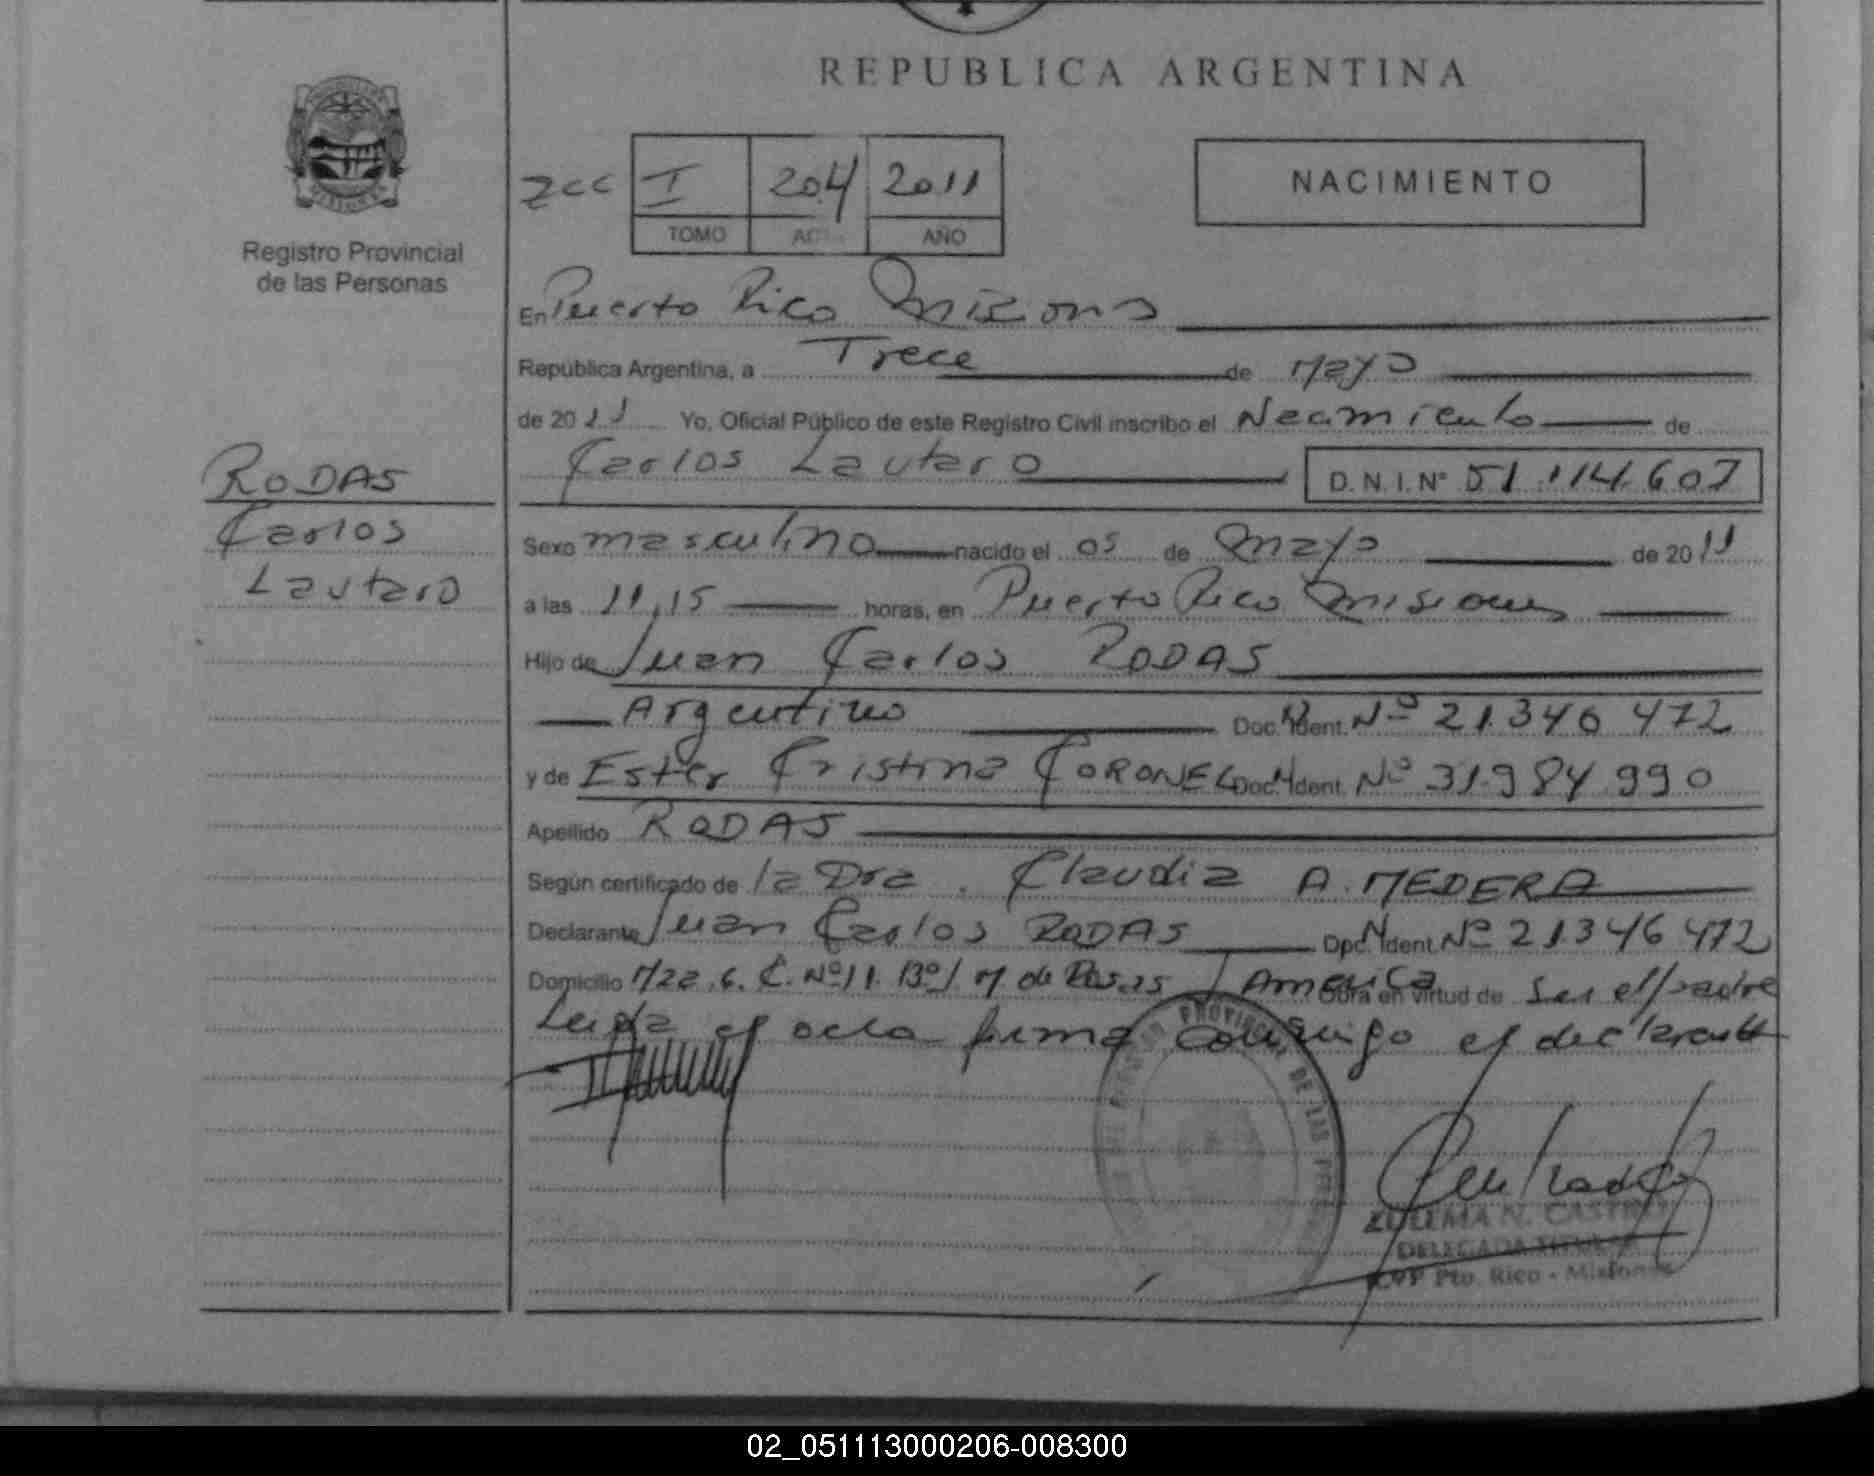 REPUBLICA ARGENTINA
Registro Provincial
de las Personas
zcc I 204 2011
TOMO ACTA AÑO
NACIMIENTO
En Puerto Rico Misiones
República Argentina, a Trece de Mayo
de 2011 Yo, Oficial Público de este Registro Civil inscribo el Nacimiento de
Carlos Lautaro D.N.I. Nº 51.114.607
RODAS
Carlos
Lautaro
Sexo masculino nacido el 05 de Mayo de 2011
a las 11,15 horas, en Puerto Rico Misiones
Hijo de Juan Carlos RODAS
Argentino Doc. Ident. Nº 21.346.472
y de Ester Cristina CORONEL Doc. Ident. Nº 31.984.990
Apellido RODAS
Según certificado de la Dra. Claudia A. MEDERA
Declarante Juan Carlos RODAS Doc. Ident. Nº 21.346.472
Domicilio Mza. 6. C. Nº 11. Bº J. M de Rosas / America Obra en virtud de ser el padre
Leída el acta firma conmigo el declarante
ZULEMA N. CASTRO
DELEGADA TITULAR
Pto. Rico - Misiones
02_051113000206-008300